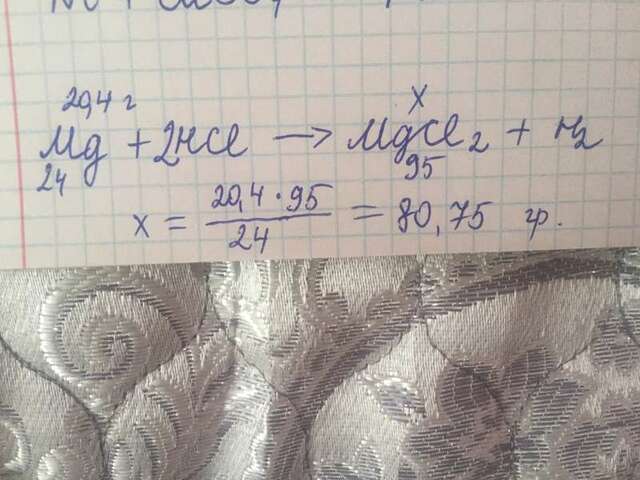 20,4 г x
Mg + 2HCl → MgCl2 + H2
24 95
x = 20,4 · 95 / 24 = 80,75 гр.